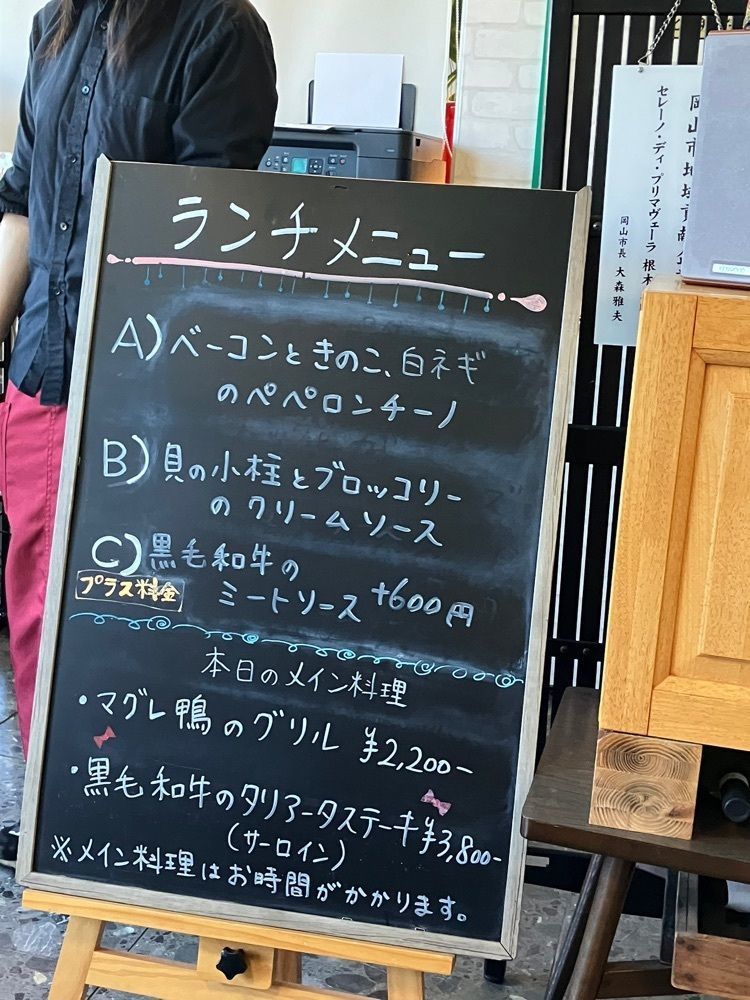 ランチメニュー
A) ベーコンときのこ、白ネギ
のペペロンチーノ
B) 貝の小柱とブロッコリー
のクリームソース
C) 黒毛和牛の
プラス料金
ミートソース +600円
本日のメイン料理
・マグレ鴨のグリル ¥2,200-
・黒毛和牛のタリアータステーキ ¥3,800-
(サーロイン)
※メイン料理はお時間がかかります。
岡山市地域貢献
セレーノ・ディ・プリマヴェーラ 根本
岡山市長 大森雅夫